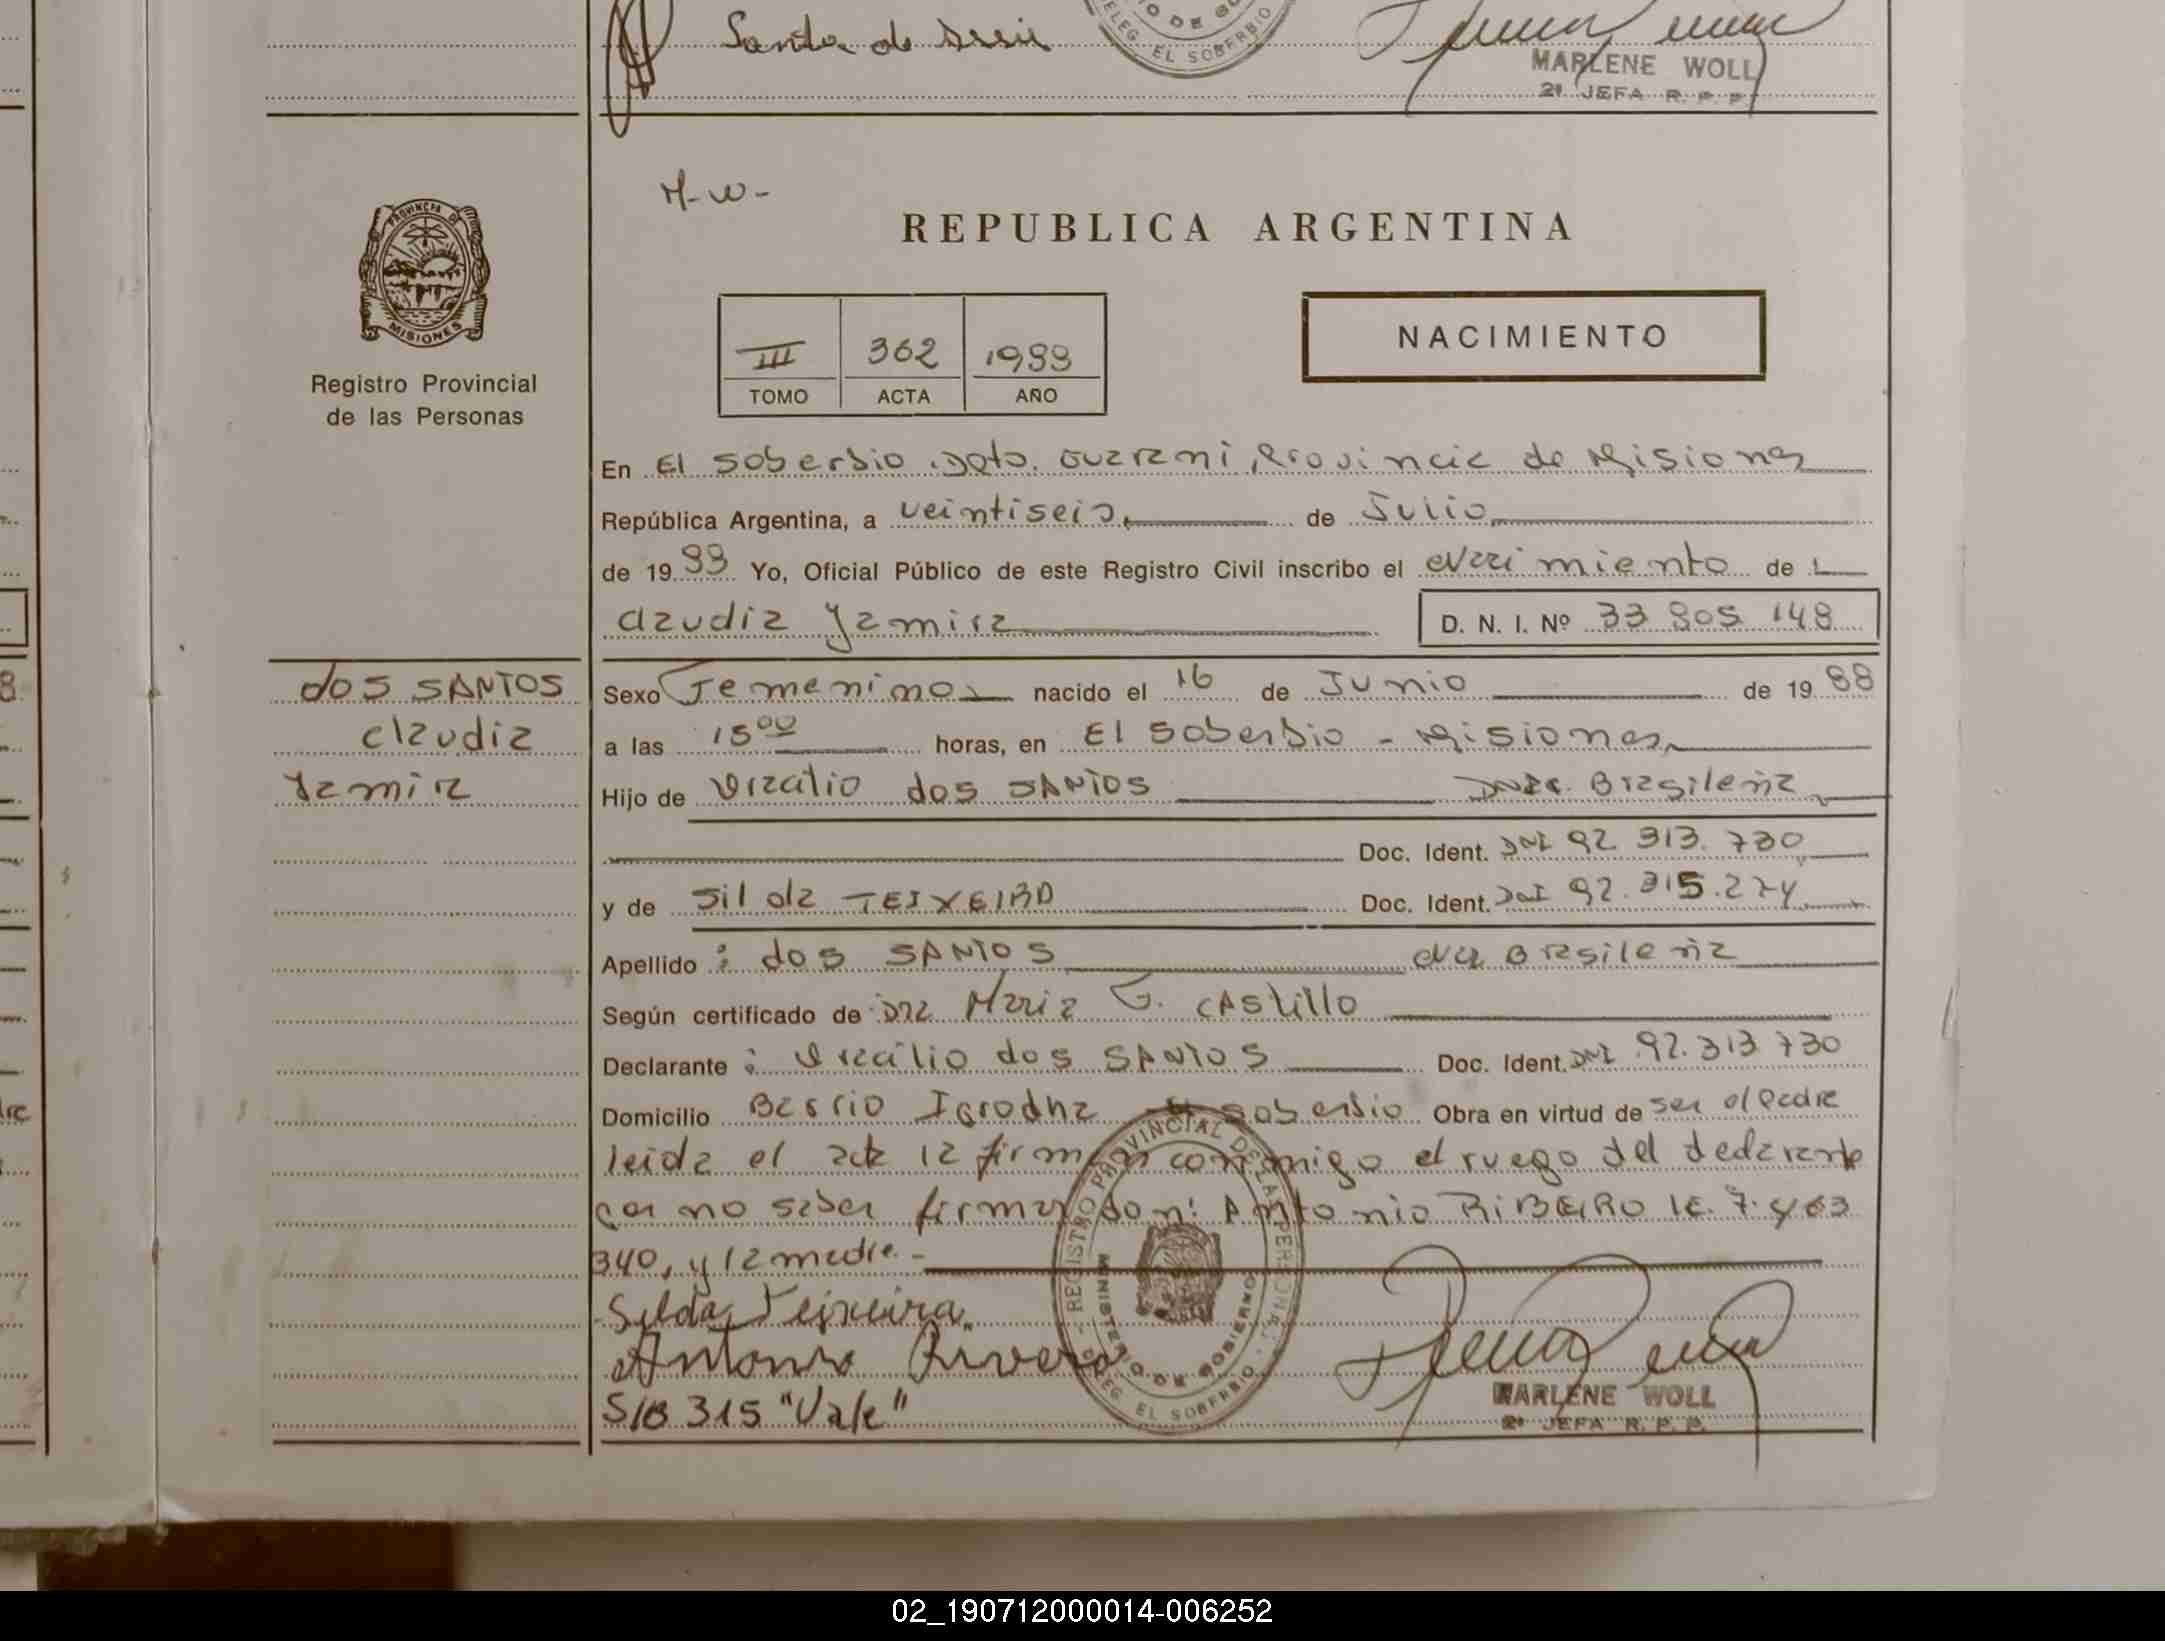 Santa de
EL SOBERBIO
MARLENE WOLL
2ª JEFA R. P. P.
M-W-
PROVINCIA DE
MISIONES
Registro Provincial
de las Personas
REPUBLICA ARGENTINA
III 362 1988
TOMO ACTA AÑO
NACIMIENTO
En El Soberbio, Dpto. Guarani, Provincia de Misiones
República Argentina, a veintiseis de Julio
de 1988 Yo, Oficial Público de este Registro Civil inscribo el Nacimiento de
Claudia Yamira D. N. I. Nº 33 805 148
dos SANTOS
Claudia
Yamira
Sexo Femenino nacido el 16 de Junio de 1988
a las 15 00 horas, en El Soberbio - Misiones
Hijo de dos SANTOS Brasileña
Doc. Ident. DNI 92 313. 730
y de Silda TEIXEIRA Doc. Ident. DNI 92.315.274
Apellido : dos SANTOS Brasileña
Según certificado de Dra Maria G. CAstillo
Declarante : dos SANTOS Doc. Ident. DNI 92.313 730
Domicilio Barrio El Soberbio Obra en virtud de ser el Padre
leida el acta la firman conmigo a ruego del declarante
por no saber firmar don: Antonio RIBEIRO LE. 7.463
340, y la madre. -
Silda Teixeira
Antonio Rivero
S/B 315 "Vale"
REGISTRO PROVINCIAL DE LAS PERSONAS
MINISTERIO DE GOBIERNO
DELEG. EL SOBERBIO
MARLENE WOLL
2ª JEFA R. P. P.
02_190712000014-006252